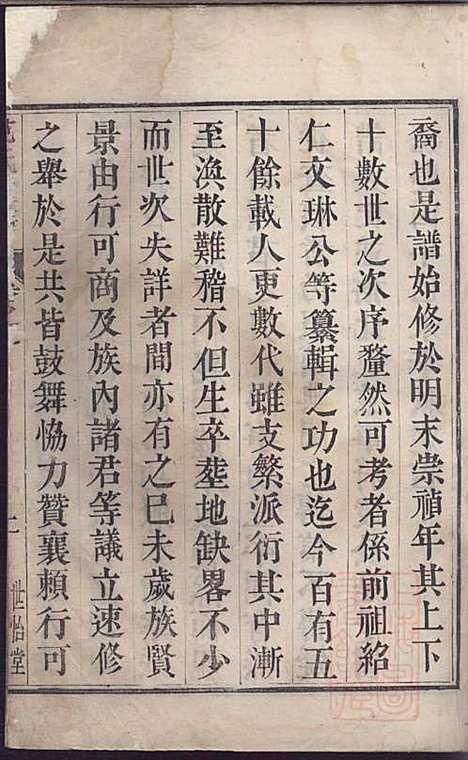 裔也是譜始修於明末崇禎年其上下
十數世之次序釐然可考者係前祖紹
仁文琳公等纂輯之功也迄今百有五
十餘載人更數代雖支繁派衍其中漸
至渙散難稽不但生卒塟地缺畧不少
而世次失詳者間亦有之巳未歲族賢
景由行可商及族內諸君等議立速修
之舉於是共皆鼓舞恊力贊襄賴行可
世怡堂